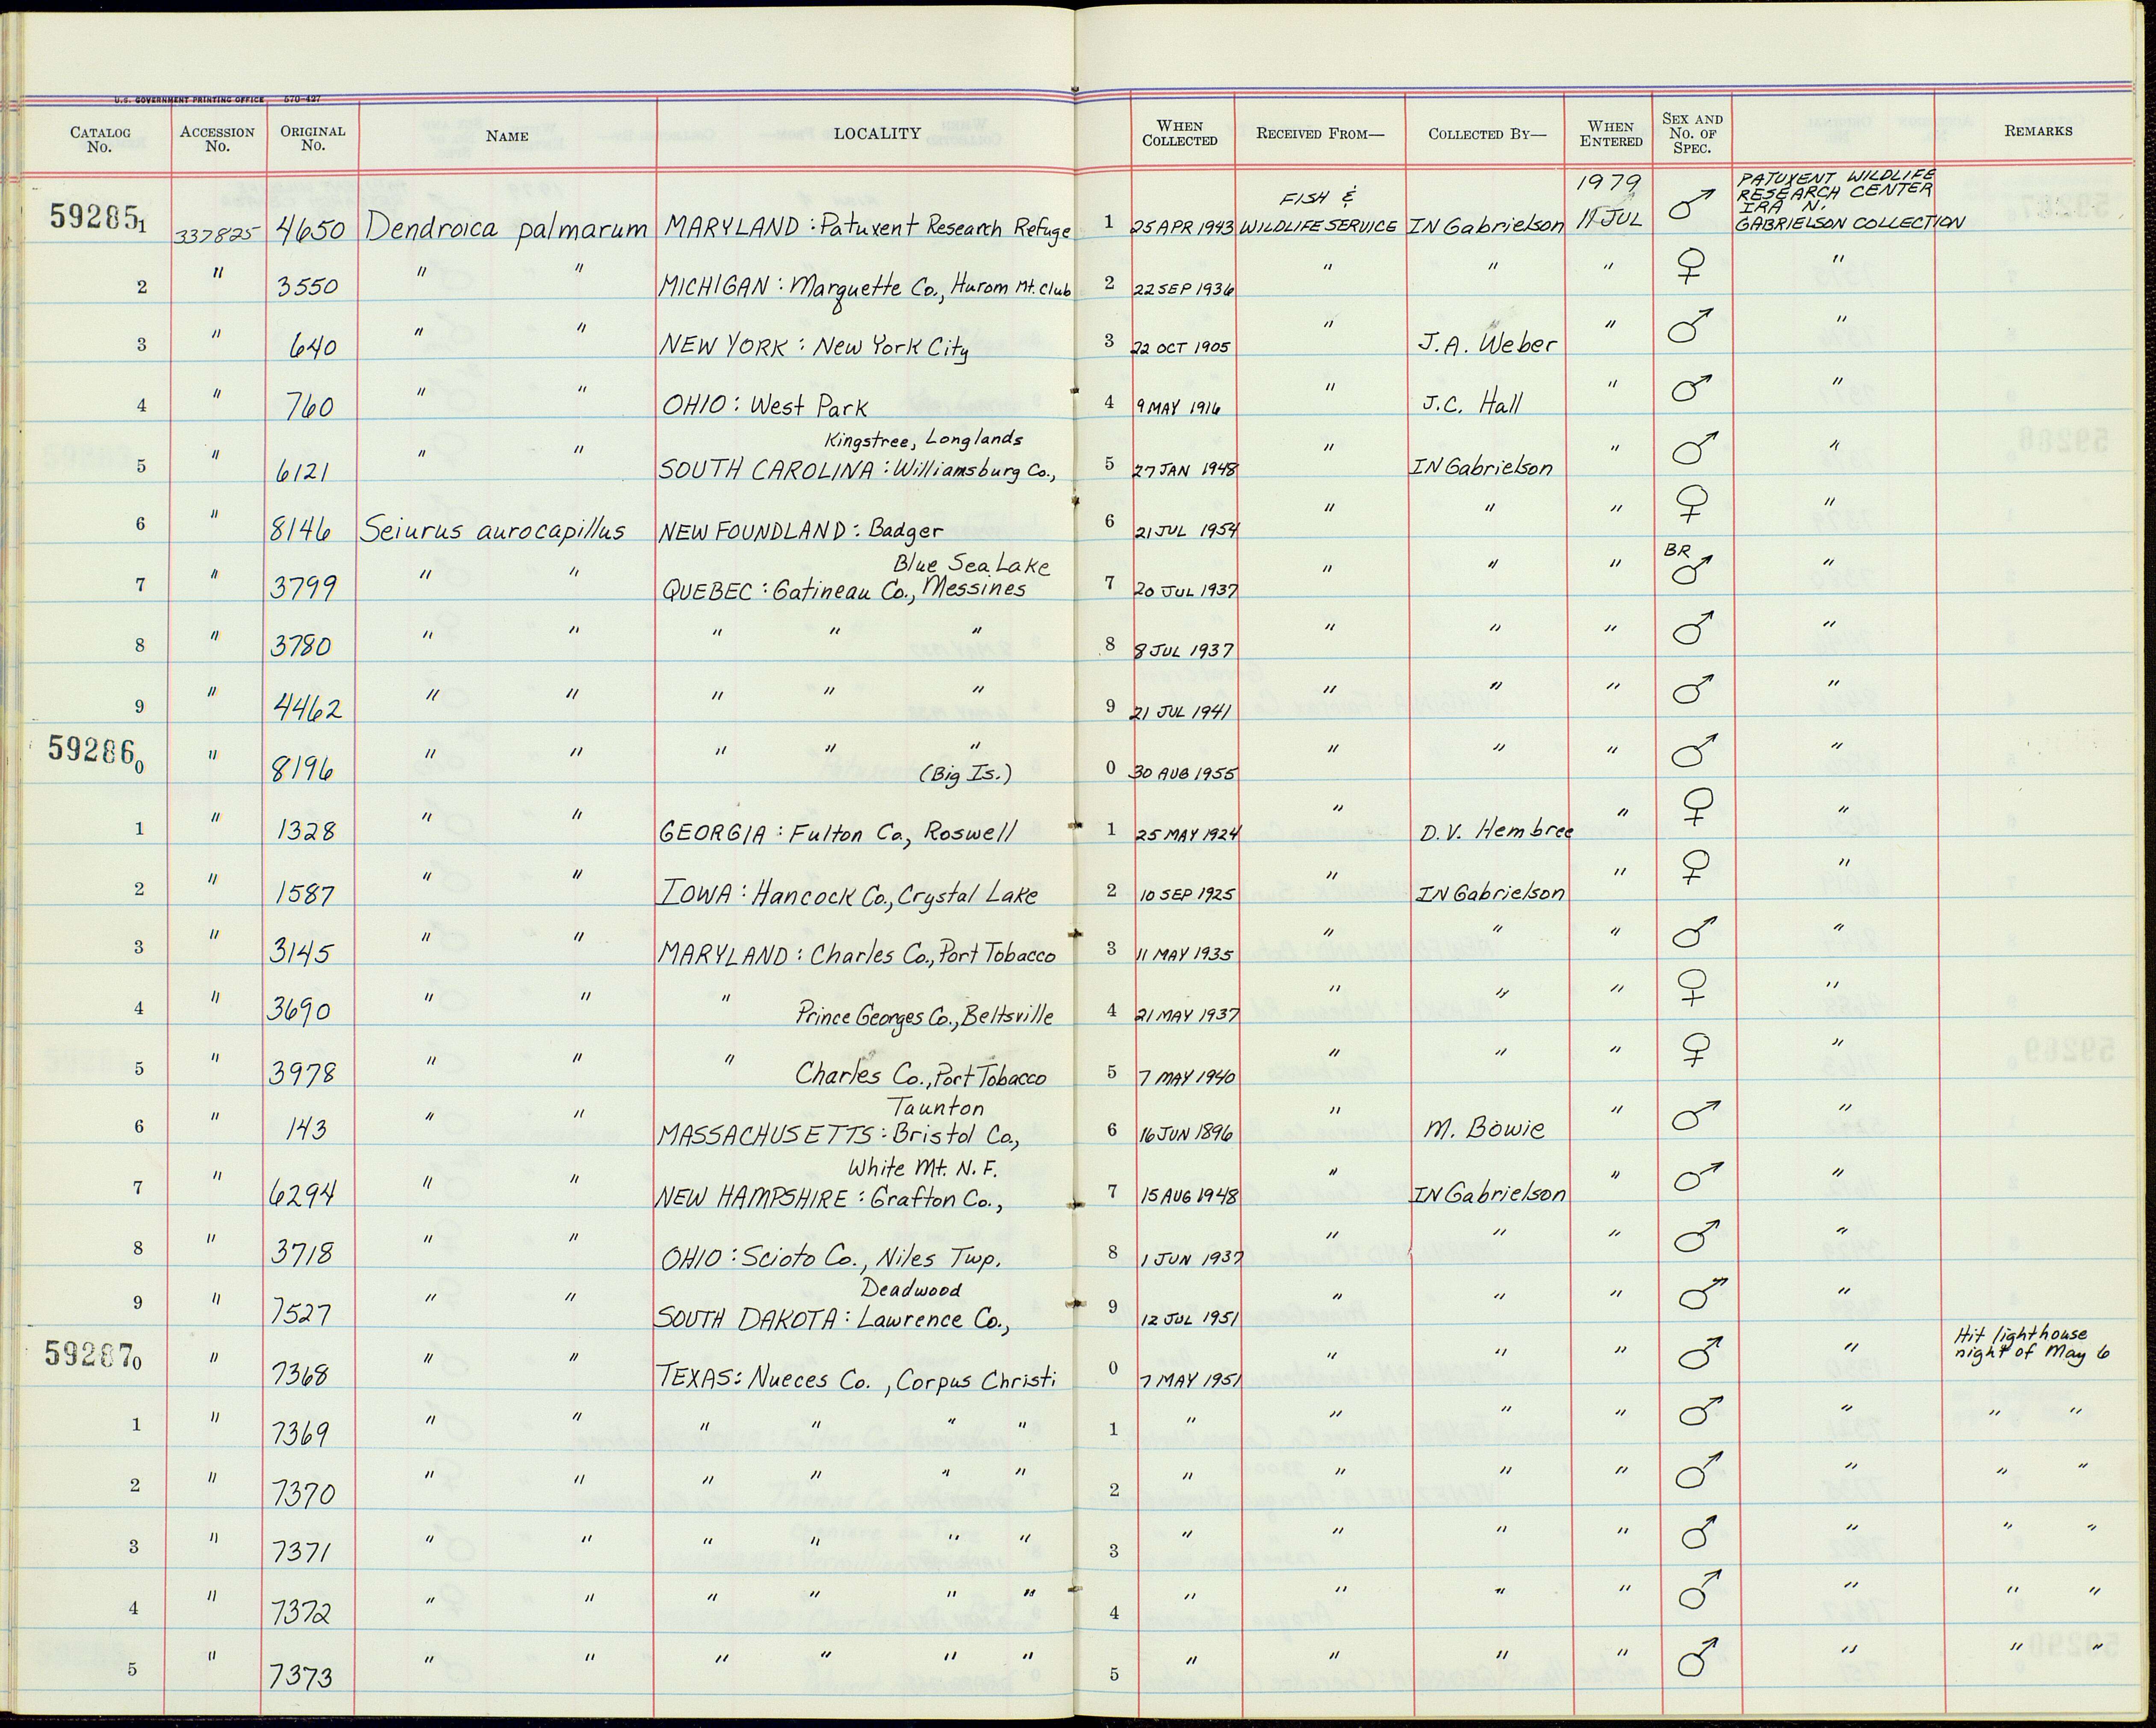 U.S. GOVERNMENT PRINTING OFFICE 570-427
CATALOG No. ACCESSION No. ORIGINAL No. NAME LOCALITY WHEN COLLECTED RECEIVED FROM— COLLECTED BY— WHEN ENTERED SEX AND No. OF SPEC. REMARKS
59285 1 337825 4650 Dendroica palmarum MARYLAND : Patuxent Research Refuge 1 25 APR 1943 FISH & WILDLIFE SERVICE IN Gabrielson 1979 11 JUL ♂ PATUXENT WILDLIFE RESEARCH CENTER IRA N. GABRIELSON COLLECTION
2 " 3550 " " MICHIGAN : Marquette Co., Hurom Mt. Club 2 22 SEP 1936 " " " ♀ "
3 " 640 " " NEW YORK : New York City 3 22 OCT 1905 " J.A. Weber " ♂ "
4 " 760 " " OHIO : West Park 4 9 MAY 1916 " J.C. Hall " ♂ "
5 " 6121 " " SOUTH CAROLINA : Williamsburg Co., Kingstree, Longlands 5 27 JAN 1948 " IN Gabrielson " ♂ "
6 " 8146 Seiurus aurocapillus NEW FOUNDLAND : Badger 6 21 JUL 1954 " " " ♀ "
7 " 3799 " " QUEBEC : Gatineau Co., Messines Blue Sea Lake 7 20 JUL 1937 " " " BR ♂ "
8 " 3780 " " " " " 8 8 JUL 1937 " " " ♂ "
9 " 4462 " " " " " 9 21 JUL 1941 " " " ♂ "
59286 0 " 8196 " " " " " (Big Is.) 0 30 AUG 1955 " " " ♂ "
1 " 1328 " " GEORGIA : Fulton Co., Roswell 1 25 MAY 1924 " D.V. Hembree " ♀ "
2 " 1587 " " IOWA : Hancock Co., Crystal Lake 2 10 SEP 1925 " IN Gabrielson " ♀ "
3 " 3145 " " MARYLAND : Charles Co., Port Tobacco 3 11 MAY 1935 " " " ♂ "
4 " 3690 " " " Prince Georges Co., Beltsville 4 21 MAY 1937 " " " ♀ "
5 " 3978 " " " Charles Co., Port Tobacco 5 7 MAY 1940 " " " ♀ "
6 " 143 " " MASSACHUSETTS : Bristol Co., Taunton 6 16 JUN 1896 " M. Bowie " ♂ "
7 " 6294 " " NEW HAMPSHIRE : Grafton Co., White Mt. N.F. 7 15 AUG 1948 " IN Gabrielson " ♂ "
8 " 3718 " " OHIO : Scioto Co., Niles Twp. 8 1 JUN 1937 " " " ♂ "
9 " 7527 " " SOUTH DAKOTA : Lawrence Co., Deadwood 9 12 JUL 1951 " " " ♂ "
59287 0 " 7368 " " TEXAS : Nueces Co., Corpus Christi 0 7 MAY 1951 " " " ♂ " Hit lighthouse night of May 6
1 " 7369 " " " " " " 1 " " " " ♂ " " "
2 " 7370 " " " " " " 2 " " " " ♂ " " "
3 " 7371 " " " " " " 3 " " " " ♂ " " "
4 " 7372 " " " " " " 4 " " " " ♂ " " "
5 " 7373 " " " " " " 5 " " " " ♂ " " "